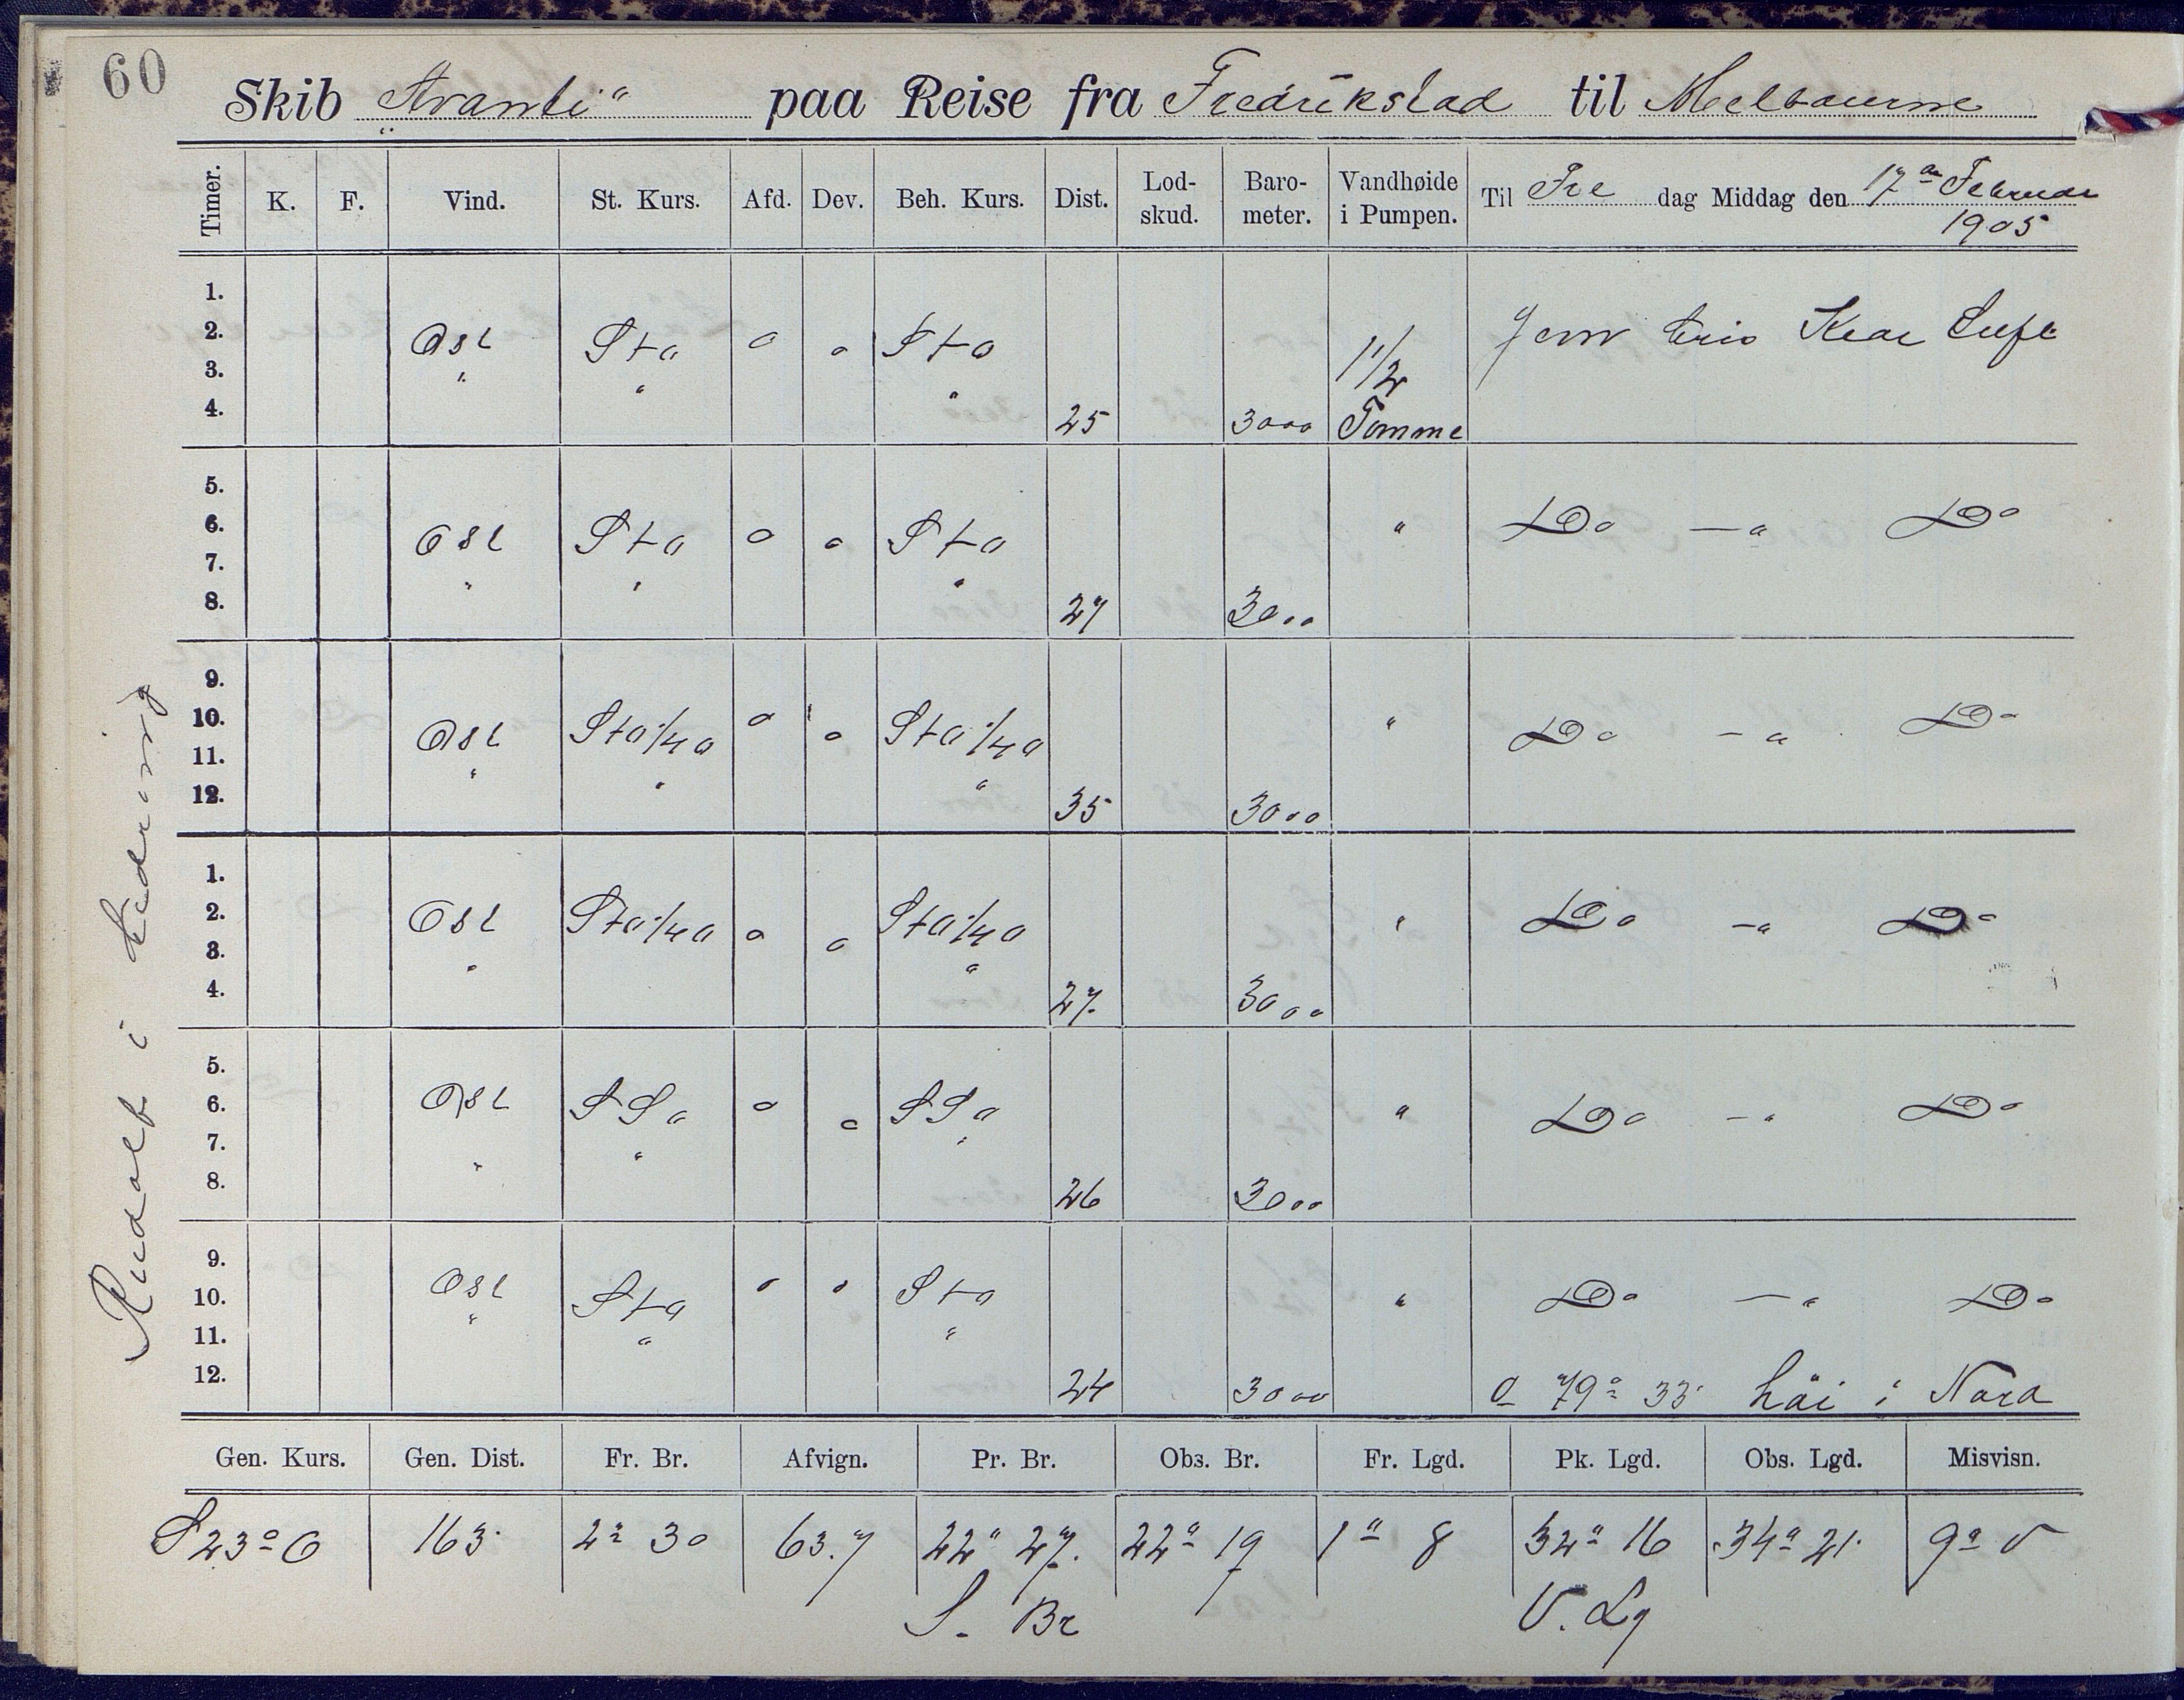 60
Skib „Avanti" paa Reise fra Fredrikstad til Melbourne
Timer. K. F. Vind. St. Kurs. Afd. Dev. Beh. Kurs. Dist. Lod-skud. Baro-meter. Vandhøide i Pumpen. Til Fre dag Middag den 17de Februar 1905
1.
2. Ost StO 0 0 StO Jevn bris Klar Luft
3. " " " 1 1/2
4. 25 3000 Tomme
5.
6. Ost StO 0 0 StO " Do — " Do
7. " " "
8. 27 3000
9.
10. Ost StO 1/4 O 0 0 StO 1/4 O " Do — " Do
11. " " "
12. 35 3000
1.
2. Ost StO 1/4 O 0 0 StO 1/4 O " Do — " Do
3. " "
4. 27. 3000
5.
6. Ost SSO 0 0 SSO " Do — " Do
7. " " "
8. 26 3000
9.
10. Ost StO 0 0 StO " Do — " Do
11. " " "
12. 24 3000 79° 33' i Nord
Rudolf i
Gen. Kurs. Gen. Dist. Fr. Br. Afvign. Pr. Br. Obs. Br. Fr. Lgd. Pk. Lgd. Obs. Lgd. Misvisn.
S 23° O 163 2° 30 63.7 22° 27. 22° 19 1° 8 34° 21 9° V
S. Br V. Lg